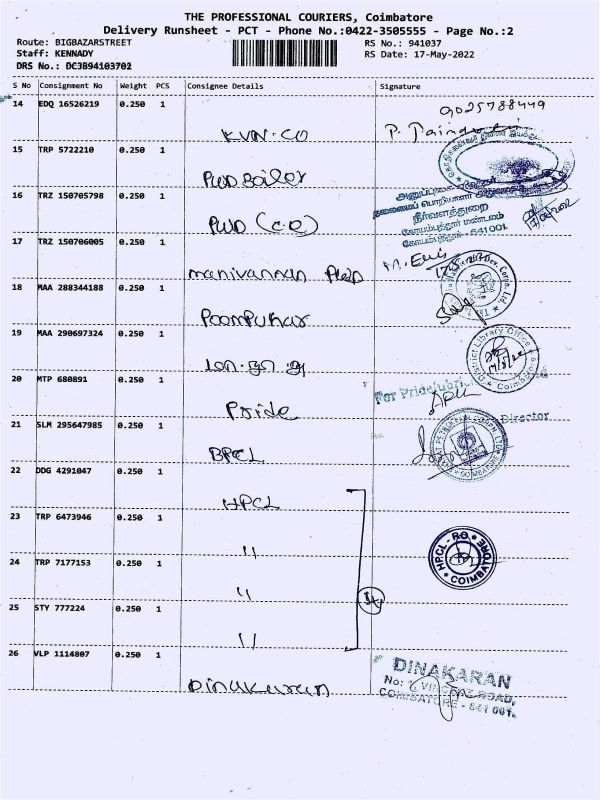 THE PROFESSIONAL COURIERS, Coimbatore
Delivery Runsheet - PCT - Phone No.:0422-3505555 - Page No.:2
Route: BIGBAZARSTREET RS No.: 941037
Staff: KENNADY RS Date: 17-May-2022
DRS No.: DCJB94103702
S No Consignment No Weight PCS Consignee Details Signature
14 EDQ 16526219 0.250 1 KVN-CO 9025788449
P.
15 TRP 5722210 0.250 1 PWD Boiler
16 TRZ 150705798 0.250 1 PWD (C.E)
தலைமைப் பொறியாளர்
நீர்வளத்துறை
கோயம்புத்தூர் மண்டலம்
கோயம்புத்தூர் - 641001
17 TRZ 150706005 0.250 1 manivannan PWD
18 MAA 288344188 0.250 1 Poompuhar
19 MAA 290697324 0.250 1 மா.நூ.அ
District Library Office Coimbatore
20 MTP 680891 0.250 1 Pride
For Pride
Director
21 SLM 295647985 0.250 1 BPCL
COIMBATORE
22 DDG 4291047 0.250 1 HPCL
23 TRP 6473946 0.250 1 "
HPCL - RO COIMBATORE
24 TRP 7177153 0.250 1 "
25 STY 777224 0.250 1 "
26 VLP 1114807 0.250 1 Dinakaran
DINAKARAN
COIMBATORE - 641 001.